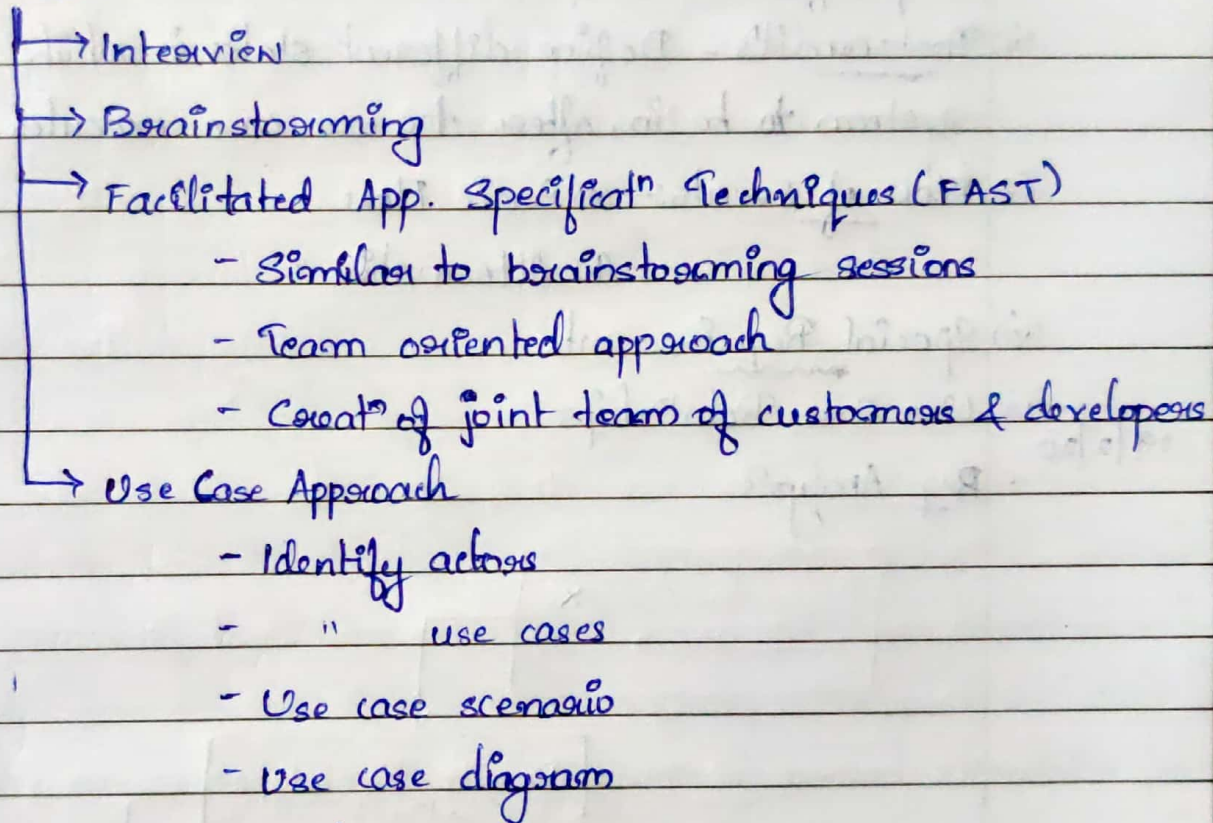 → Interview
→ Brainstorming
→ Facilitated App. Specificatⁿ Techniques (FAST)
- Similar to brainstorming sessions
- Team oriented approach
- Creatⁿ of joint team of customers & developers
→ Use Case Approach
- Identify actors
- " use cases
- Use case scenario
- Use case diagram